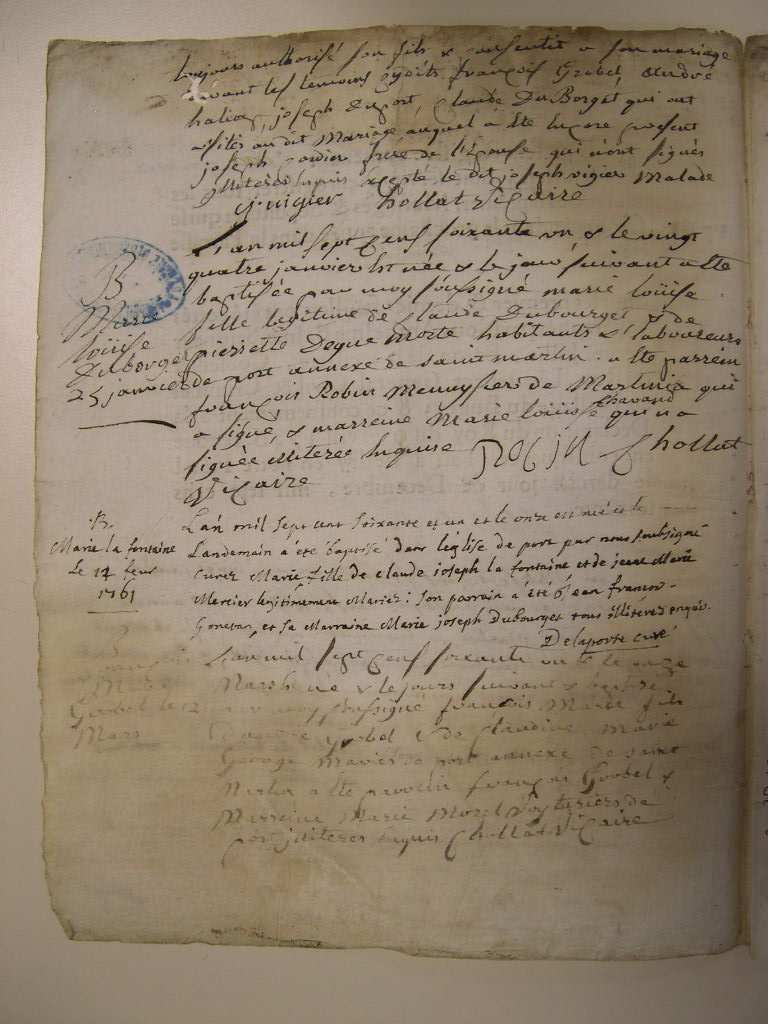 toujours authorisé son fils & consentit a son mariage
devant les temoins sydits françois Grobel, André
joseph Duport, Claude DuBorget qui ont
assistés audit Mariage auquel a été encore present
joseph frere de l'épouse qui n'ont signés
illiterés Enquis Excepté le dit joseph vigier Malade
j. vigier Chollat Vicaire
L'an mil sept cens soixante un & le vingt
quatre janvier Est née & le jour suivant a été
baptisée par moy soussigné marie loüise
fille legitime de claude Dubourget & de
pierrette Degue morte habitants & laboureurs
de port annexe de saint martin. a été parrein
françois Robin Menuysier de Martinia qui
a signé, & marreine Marie loüise Chavand qui n'a
signée illiterée Enquise Robin Chollat
Vicaire
B
Marie
loüise
Duborget
25 janvier
L'an mil sept cent soixante et un et le onze est née et le
Landemain a été baptisé dans l'église de port par nous soubsigné
curez Marie fille de claude joseph la fontaine et de jeane Marie
Mercier legitimement Mariez: son parrain a été
et sa Marraine Marie joseph Dubourget tous illiterez enquis.
Delaporte curé
B.
Marie la fontaine
Le 14 fevr
1761
L'an mil sept cens soixante un & le onze
Mars né & le jours suivant baptisé
par moy soussigné françois Marie fils
Grobel & de Claudine Marie
Mariés de port annexe de saint
Martin a été parrein françois Grobel &
Marreine Marie Morel de
port illiteres Enquis Chollat Vicaire
Marie
Grobel le 12
Mars